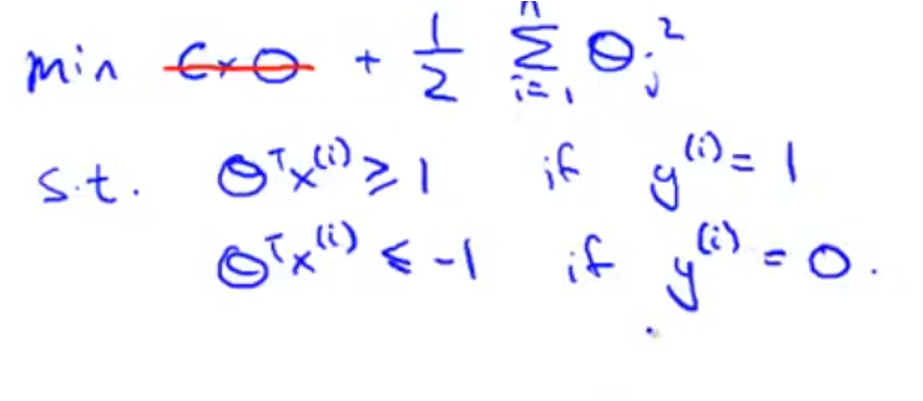 min C×0 + 1/2 Σ_{i=1}^{n} Θ_j^2
s.t. Θ^T x^(i) ≥ 1 if y^(i) = 1
Θ^T x^(i) ≤ -1 if y^(i) = 0.